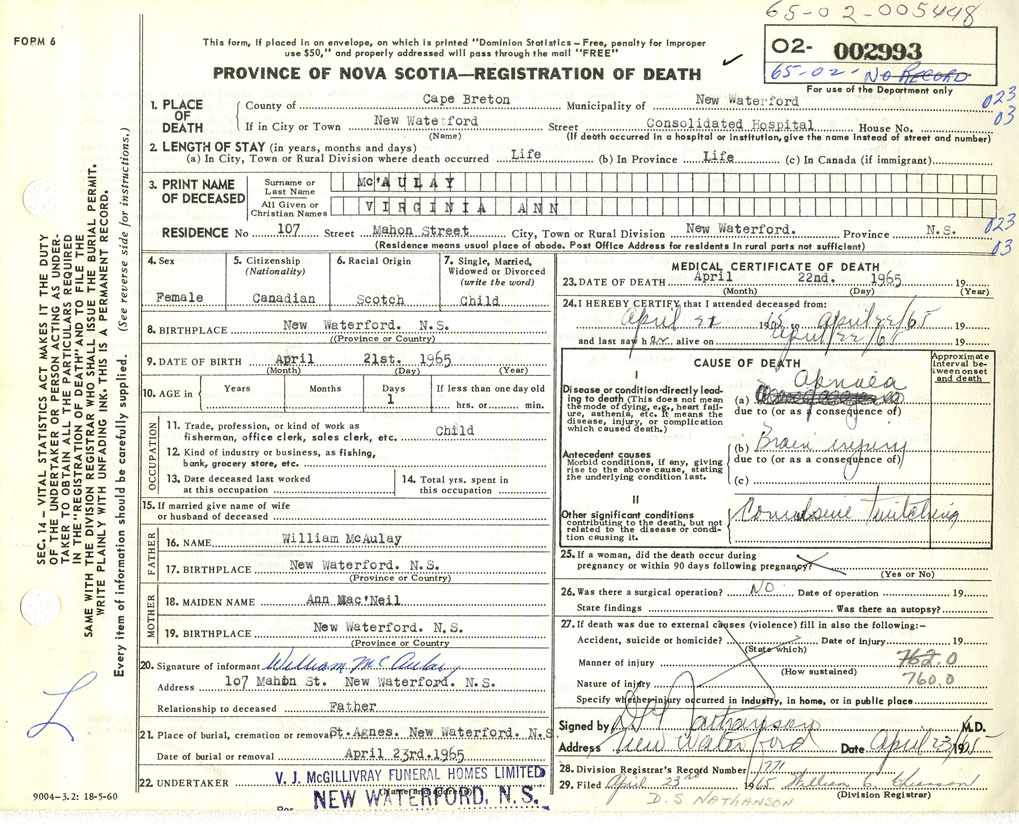 65-02-005448
FORM 6
This form, if placed in an envelope, on which is printed "Dominion Statistics – Free, penalty for improper
use $50," and properly addressed will pass through the mail "FREE"
02- 002993
65-02- NO RECORD
For use of the Department only
PROVINCE OF NOVA SCOTIA—REGISTRATION OF DEATH
1. PLACE OF DEATH County of Cape Breton Municipality of New Waterford 023
If in City or Town New Waterford Street Consolidated Hospital House No. 03
(Name) (If death occurred in a hospital or institution, give the name instead of street and number)
2. LENGTH OF STAY (in years, months and days)
(a) In City, Town or Rural Division where death occurred Life (b) In Province Life (c) In Canada (if immigrant)
3. PRINT NAME OF DECEASED Surname or Last Name Mc'AULAY
All Given or Christian Names VIRGINIA ANN
RESIDENCE No 107 Street Mahon Street City, Town or Rural Division New Waterford. Province N.S. 023
(Residence means usual place of abode. Post Office Address for residents in rural parts not sufficient) 03
4. Sex Female
5. Citizenship (Nationality) Canadian
6. Racial Origin Scotch
7. Single, Married, Widowed or Divorced (write the word) Child
8. BIRTHPLACE New Waterford. N.S.
((Province or Country)
9. DATE OF BIRTH April 21st. 1965
(Month) (Day) (Year)
10. AGE in Years Months Days 1 If less than one day old hrs. or min.
OCCUPATION
11. Trade, profession, or kind of work as
fisherman, office clerk, sales clerk, etc. Child
12. Kind of industry or business, as fishing,
bank, grocery store, etc.
13. Date deceased last worked
at this occupation
14. Total yrs. spent in
this occupation
15. If married give name of wife
or husband of deceased
FATHER
16. NAME William McAulay
17. BIRTHPLACE New Waterford. N.S.
(Province or Country)
MOTHER
18. MAIDEN NAME Ann Mac'Neil
19. BIRTHPLACE New Waterford. N.S.
(Province or Country
20. Signature of informant William McAulay
Address 107 Mahon St. New Waterford. N.S.
Relationship to deceased Father
21. Place of burial, cremation or removal St.Agnes. New Waterford. N.S
Date of burial or removal April 23rd.1965
22. UNDERTAKER V. J. McGILLIVRAY FUNERAL HOMES LIMITED
NEW WATERFORD, N. S.
Per
9004-3.2: 18-5-60
MEDICAL CERTIFICATE OF DEATH
23. DATE OF DEATH April 22nd. 1965
(Month) (Day) (Year)
24. I HEREBY CERTIFY that I attended deceased from:
April 21 1965 to April 22/65 19
and last saw her alive on April 22/65 19
CAUSE OF DEATH
Approximate interval between onset and death
I
Disease or condition directly leading to death (This does not mean the mode of dying, e.g., heart failure, asthenia, etc. It means the disease, injury, or complication which caused death.)
(a) Apnoea
due to (or as a consequence of)
Antecedent causes
Morbid conditions, if any, giving rise to the above cause, stating the underlying condition last.
(b) Brain injury
due to (or as a consequence of)
(c)
II
Other significant conditions
contributing to the death, but not related to the disease or condition causing it.
Convulsive twitching
25. If a woman, did the death occur during
pregnancy or within 90 days following pregnancy?
(Yes or No)
26. Was there a surgical operation? NO Date of operation 19
State findings Was there an autopsy?
27. If death was due to external causes (violence) fill in also the following:-
Accident, suicide or homicide? Date of injury 19
(State which)
Manner of injury 762.0
(How sustained)
Nature of injury 760.0
Specify whether injury occurred in industry, in home, or in public place
Signed by D S Nathanson M.D.
Address New Waterford Date April 23 1965
28. Division Registrar's Record Number 771
29. Filed April 23rd 1965 William E.
(Division Registrar)
D. S NATHANSON
SEC. 14 – VITAL STATISTICS ACT MAKES IT THE DUTY
OF THE UNDERTAKER OR PERSON ACTING AS UNDER-
TAKER TO OBTAIN ALL THE PARTICULARS REQUIRED
IN THE "REGISTRATION OF DEATH" AND TO FILE THE
SAME WITH THE DIVISION REGISTRAR WHO SHALL ISSUE THE BURIAL PERMIT.
WRITE PLAINLY WITH UNFADING INK. THIS IS A PERMANENT RECORD.
Every item of information should be carefully supplied. (See reverse side for instructions.)